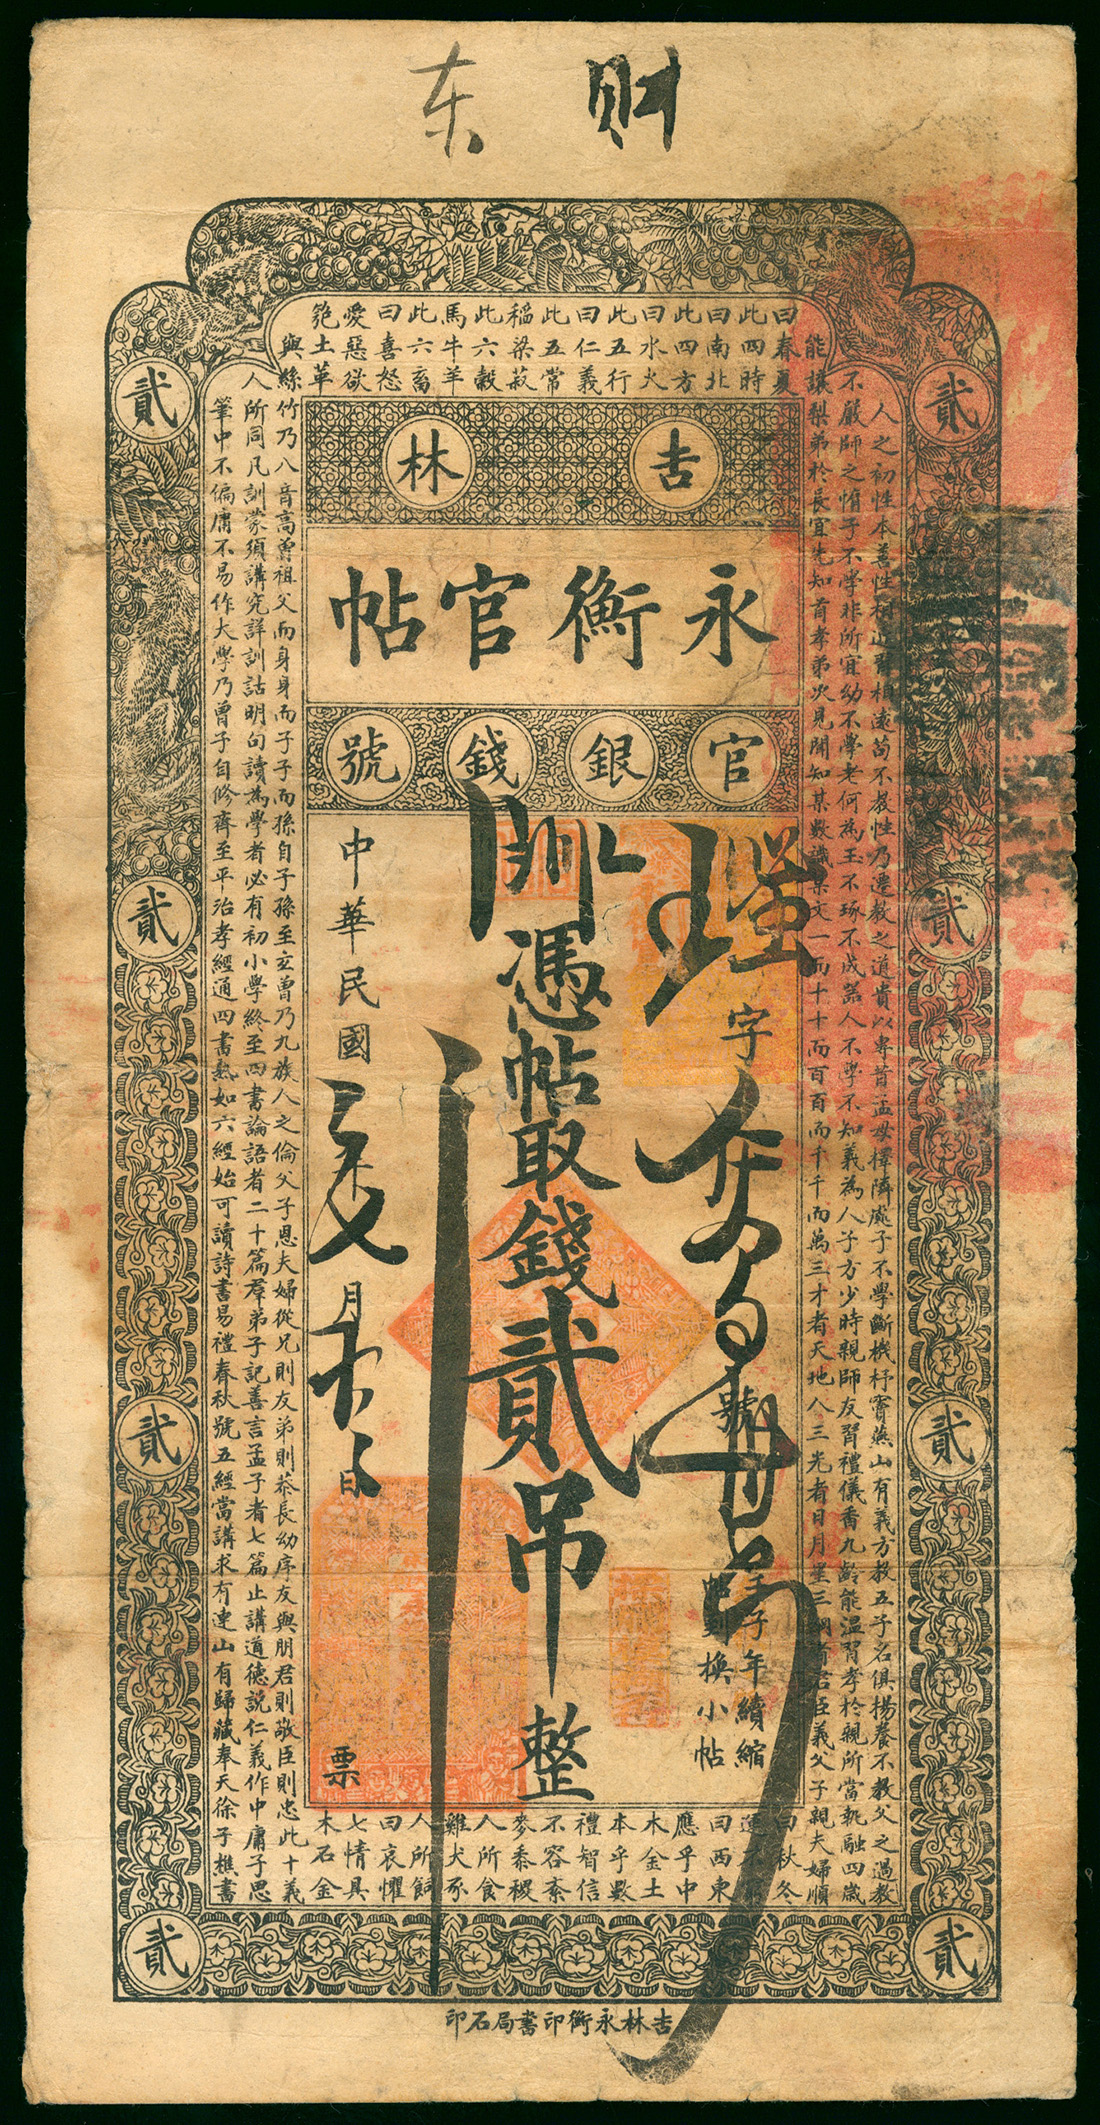 財東
人之初性本善性相近習相遠苟不教性乃遷教之道貴以專昔孟母擇隣處子不學斷機杼竇燕山有義方教五子名俱揚養不教父之過教
不嚴師之惰子不學非所宜幼不學老何為玉不琢不成器人不學不知義為人子方少時親師友習禮儀香九齡能溫習孝於親所當執融四歲
能讓梨弟於長宜先知首孝弟次見聞知某數識某文一而十十而百百而千千而萬三才者天地人三光者日月星三綱者君臣義父子親夫婦順
曰春夏
曰秋冬
此四時
運不窮
曰南北
曰西東
此四方
應乎中
曰水火
木金土
此五行
本乎數
曰仁義
禮智信
此五常
不容紊
稻粱菽
麥黍稷
此六穀
人所食
馬牛羊
雞犬豕
此六畜
人所飼
曰喜怒
曰哀懼
愛惡欲
七情具
匏土革
木石金
與絲竹乃八音高曾祖父而身身而子子而孫自子孫至玄曾乃九族人之倫父子恩夫婦從兄則友弟則恭長幼序友與朋君則敬臣則忠此十義
人所同凡訓蒙須講究詳訓詁明句讀為學者必有初小學終至四書論語者二十篇羣弟子記善言孟子者七篇止講道德說仁義作中庸子思
筆中不偏庸不易作大學乃曾子自修齊至平治孝經通四書熟如六經始可讀詩書易禮春秋號五經當講求有連山有歸藏奉天徐子樵書
吉林
永衡官帖
官銀錢號
字 號
壬子年續縮
帖到換小帖
憑帖取錢貳吊整
中華民國 月 日
票
貳
貳
貳
貳
貳
貳
貳
貳
吉林永衡印書局石印